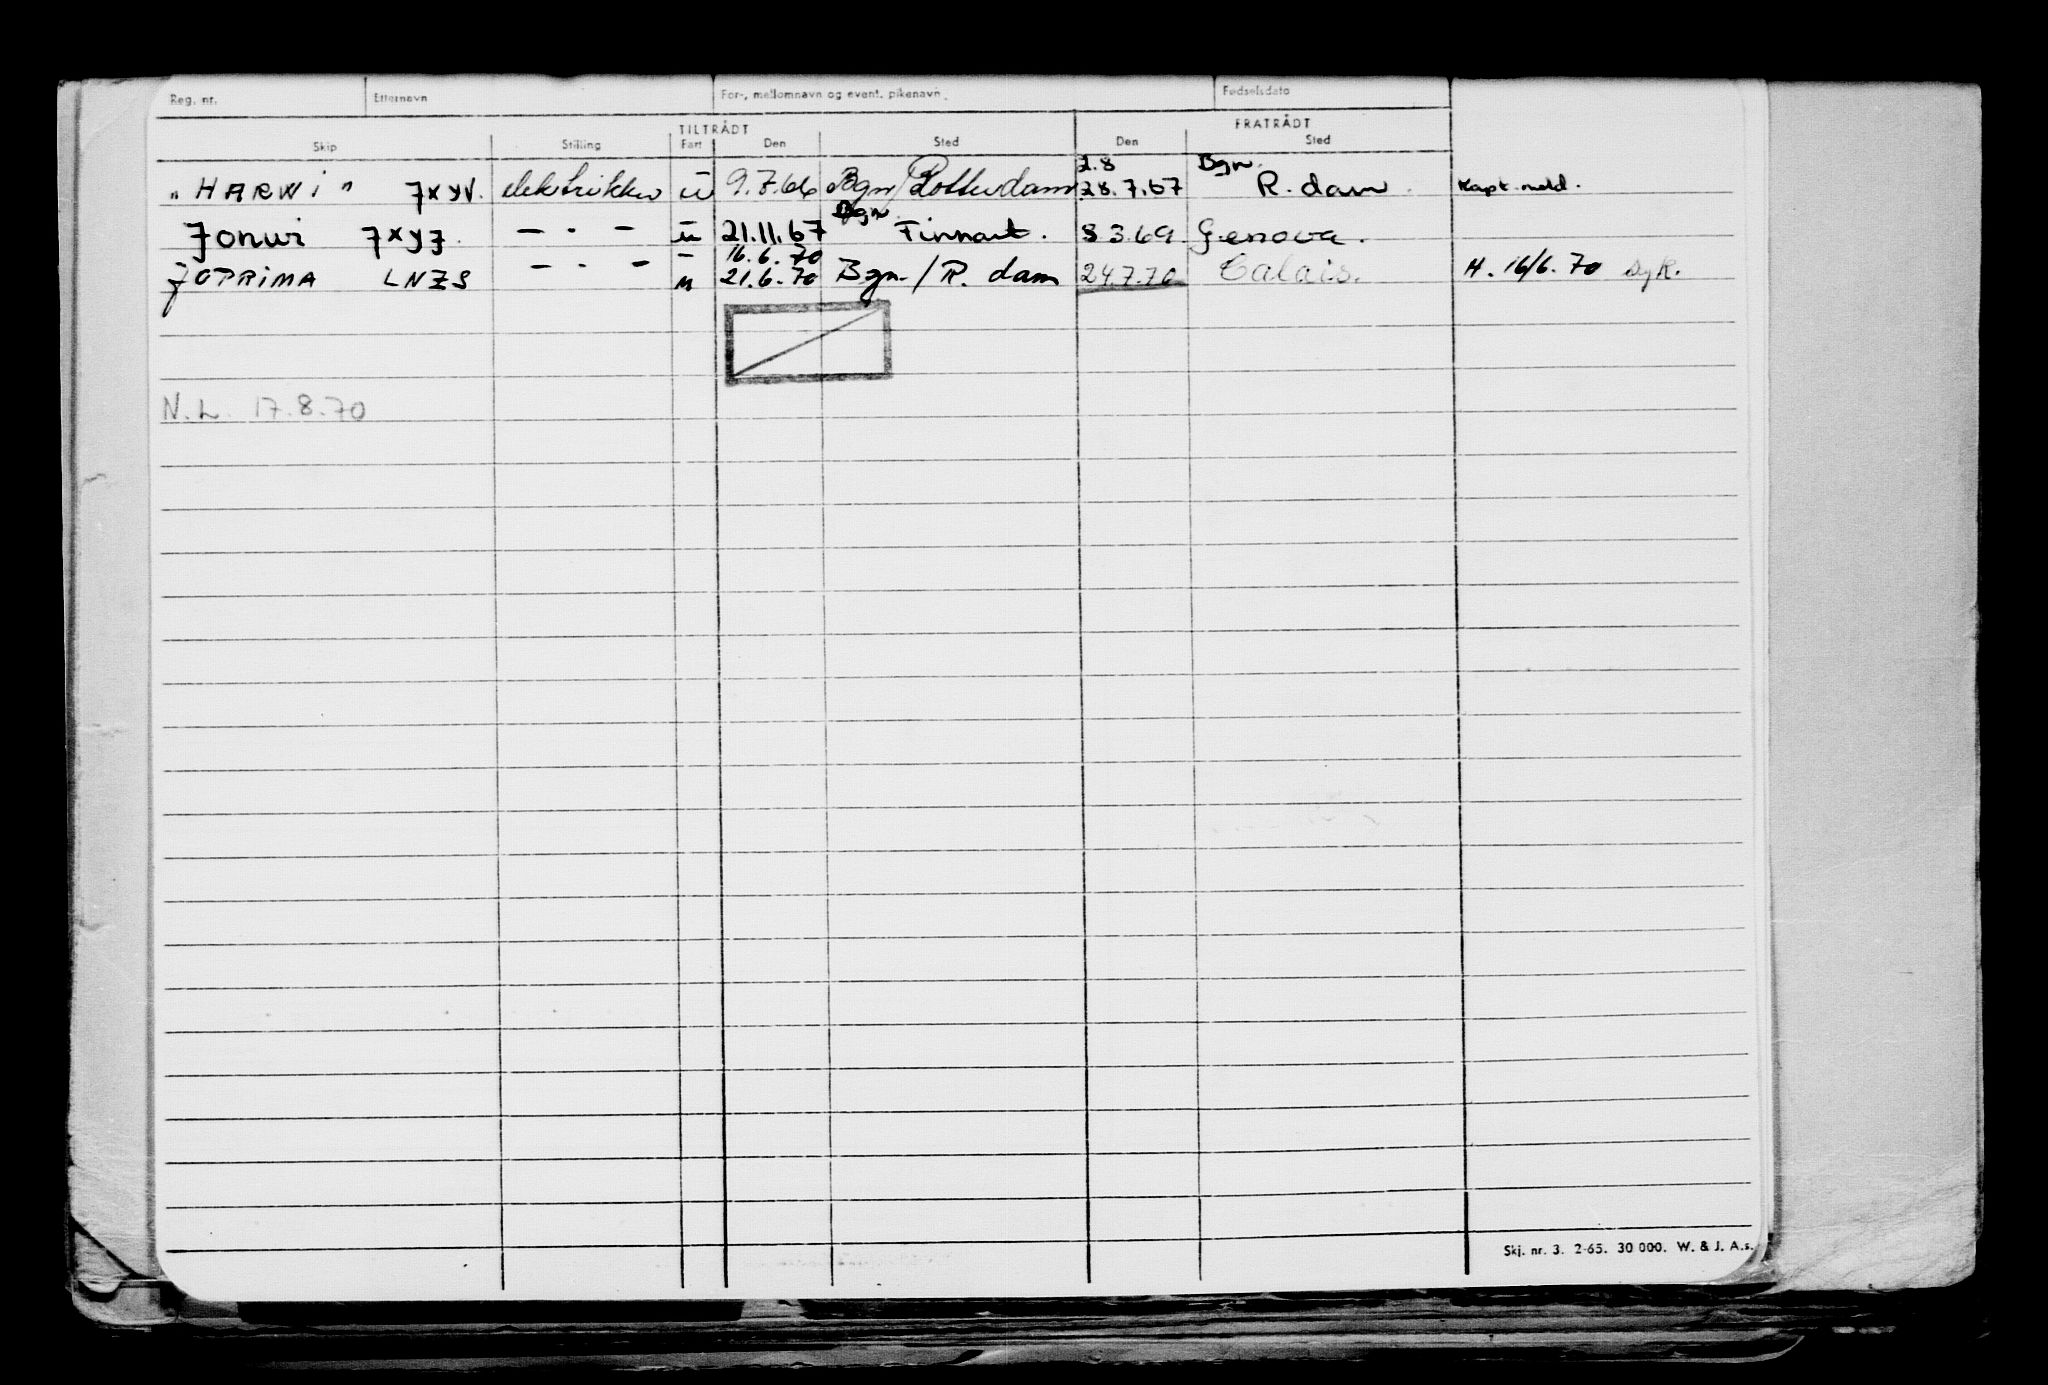 Reg. nr. Etternavn For-, mellomnavn og event. pikenavn. Fødselsdato
TILTRÅDT FRATRÅDT
Skip Stilling Fart Den Sted Den Sted
2.8 Bgn.
"HARWI" JXYV. elektriker u 9.7.66 Bgn/Rotterdam 28.7.67 R.dam. Kapt. meld.
Bgn.
Jonwi JXYJ. — · — u 21.11.67 Finnart. 8 3.69 Genova.
16.6.70
JOPRIMA LNZS — · — u 21.6.70 Bgn./R. dam 24.7.70 Calais. H. 16/6.70 Syk.
N.L. 17.8.70
Skj. nr. 3. 2-65. 30 000. W. & J. A.s.